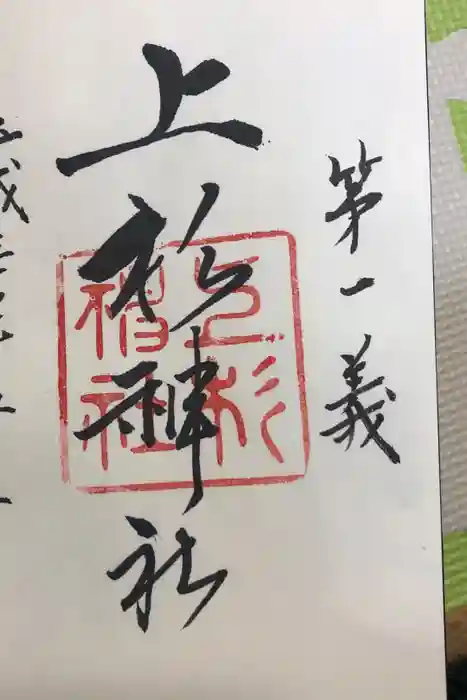 第一義
上杉神社
上杉神社
平成三